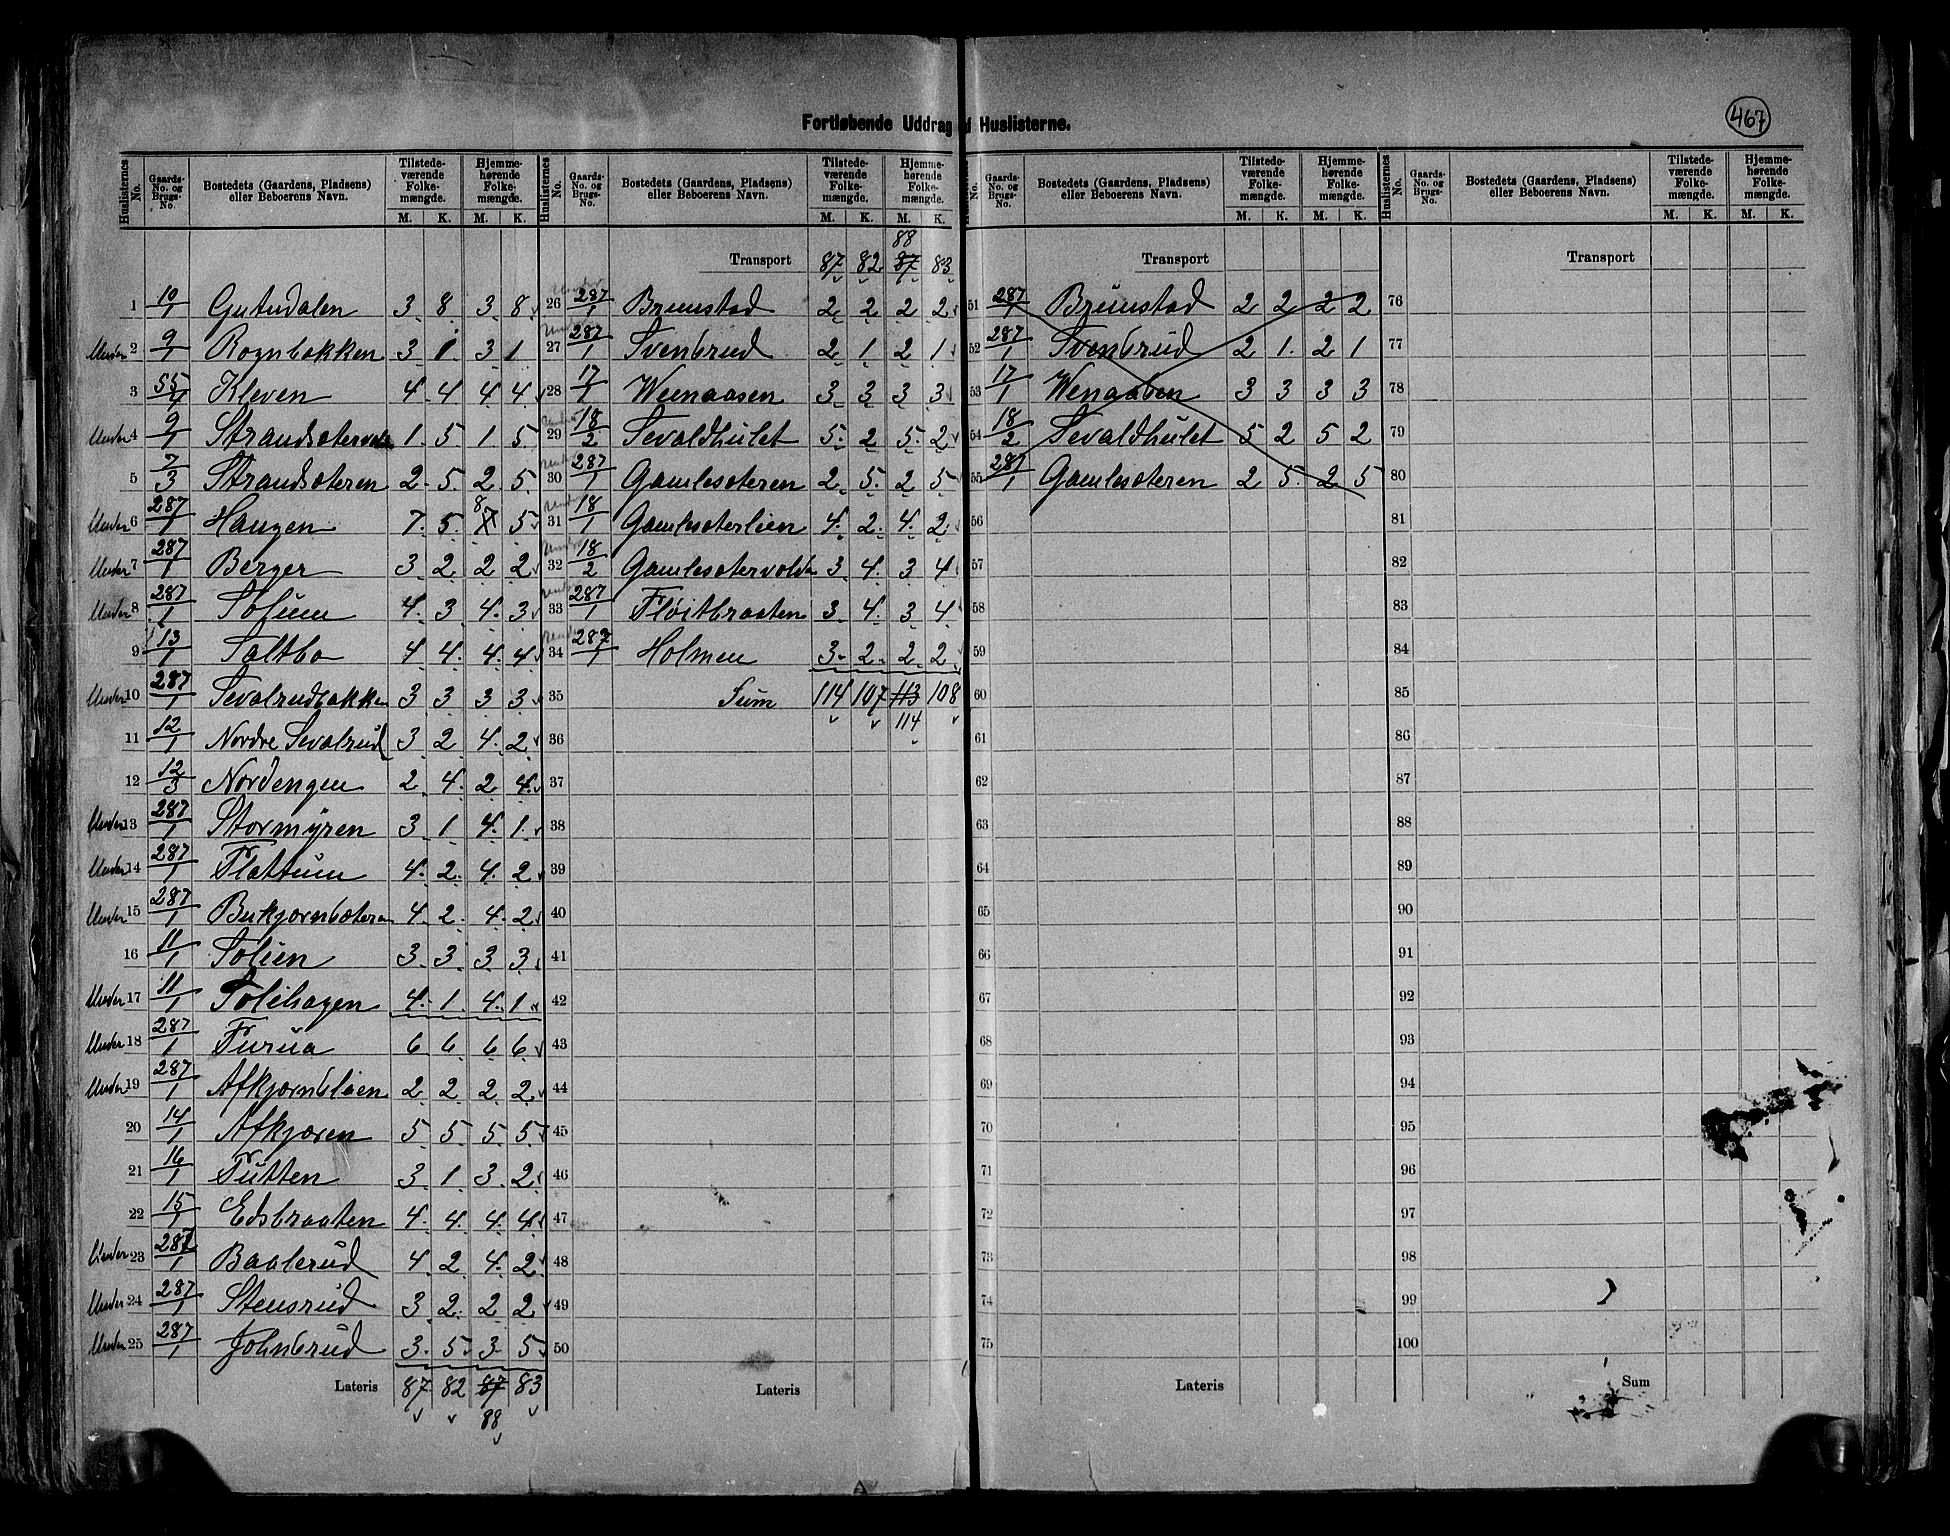 467
Fortløbende Uddrag af Huslisterne.
Huslisternes No. | Gaards-No. og Brugs-No. | Bostedets (Gaardens, Pladsens) eller Beboerens Navn. | Tilstedeværende Folkemængde. M. K. | Hjemmehørende Folkemængde. M. K.
1 10/1 Gutudalen 3 8 3 8
Under 2 9/1 Rognbakken 3 1 3 1
3 55/4 Kleven 4 4 4 4
Under 4 9/1 Strandsætervolden 1 5 1 5
5 7/3 Strandsæteren 2 5 2 5
Under 6 287/1 Haugen 7 5 7 8 5
Under 7 287/1 Berger 3 2 2 2
Under 8 287/1 Solum 4 3 4 3
9 13/1 Saltbo 4 4 4 4
Under 10 287/1 Sevalrudbakken 3 3 3 3
11 12/1 Nordre Sevalrud 3 2 4 2
12 12/3 Nordengen 2 4 2 4
Under 13 287/1 Stormyren 3 1 4 1
Under 14 287/1 Flattum 4 2 4 2
Under 15 287/1 4 2 4 2
16 11/1 Solien 3 3 3 3
Under 17 11/1 Solihagen 4 1 4 1
Under 18 287/1 Furua 6 6 6 6
Under 19 287/1 Afkjærnslien 2 2 2 2
20 14/1 Afkjæren 5 5 5 5
21 16/1 Tutten 3 1 3 2
22 15/1 Edsbraaten 4 4 4 4
Under 23 287/1 Baalerud 4 2 4 2
Under 24 287/1 Stensrud 3 2 2 2
Under 25 287/1 Johnsrud 3 5 3 5
Lateris 87 82 87 83
88
Huslisternes No. | Gaards-No. og Brugs-No. | Bostedets (Gaardens, Pladsens) eller Beboerens Navn. | Tilstedeværende Folkemængde. M. K. | Hjemmehørende Folkemængde. M. K.
88
Transport 87 82 87 83
Under 26 287/1 Brunstad 2 2 2 2
Under 27 287/1 Svenbrud 2 1 2 1
28 17/1 Wennaasen 3 3 3 3
Under 29 18/2 Sevaldhulet 5 2 5 2
Under 30 287/1 Gamlesæteren 2 5 2 5
Under 31 18/1 Gamlesæterlien 4 2 4 2
Under 32 18/2 Gamlesætervolden 3 4 3 4
Under 33 287/1 Fløitbraaten 3 4 3 4
Under 34 287/1 Holmen 3 2 2 2
35 Sum 114 107 113 108
114
36
37
38
39
40
41
42
43
44
45
46
47
48
49
50
Lateris
No. | Gaards-No. og Brugs-No. | Bostedets (Gaardens, Pladsens) eller Beboerens Navn. | Tilstedeværende Folkemængde. M. K. | Hjemmehørende Folkemængde. M. K.
Transport
51 287/1 Brunstad 2 2 2 2
52 287/1 Svenbrud 2 1 2 1
53 17/1 Wenaasen 3 3 3 3
54 18/2 Sevaldhulet 5 2 5 2
55 287/1 Gamlesæteren 2 5 2 5
56
57
58
59
60
61
62
63
64
65
66
67
68
69
70
71
72
73
74
75
Lateris
Huslisternes No. | Gaards-No. og Brugs-No. | Bostedets (Gaardens, Pladsens) eller Beboerens Navn. | Tilstedeværende Folkemængde. M. K. | Hjemmehørende Folkemængde. M. K.
Transport
76
77
78
79
80
81
82
83
84
85
86
87
88
89
90
91
92
93
94
95
96
97
98
99
100
Sum